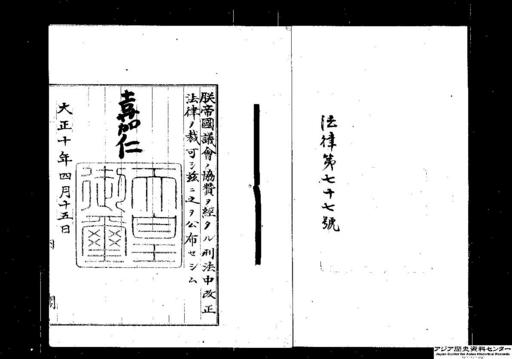 法律第七十七號
朕帝國議會ノ協贊ヲ經タル刑法中改正
法律ヲ裁可シ玆ニ之ヲ公布セシム
嘉仁
天皇
御璽
大正十年四月十五日
内
閣
アジア歴史資料センター
Japan Center for Asian Historical Records